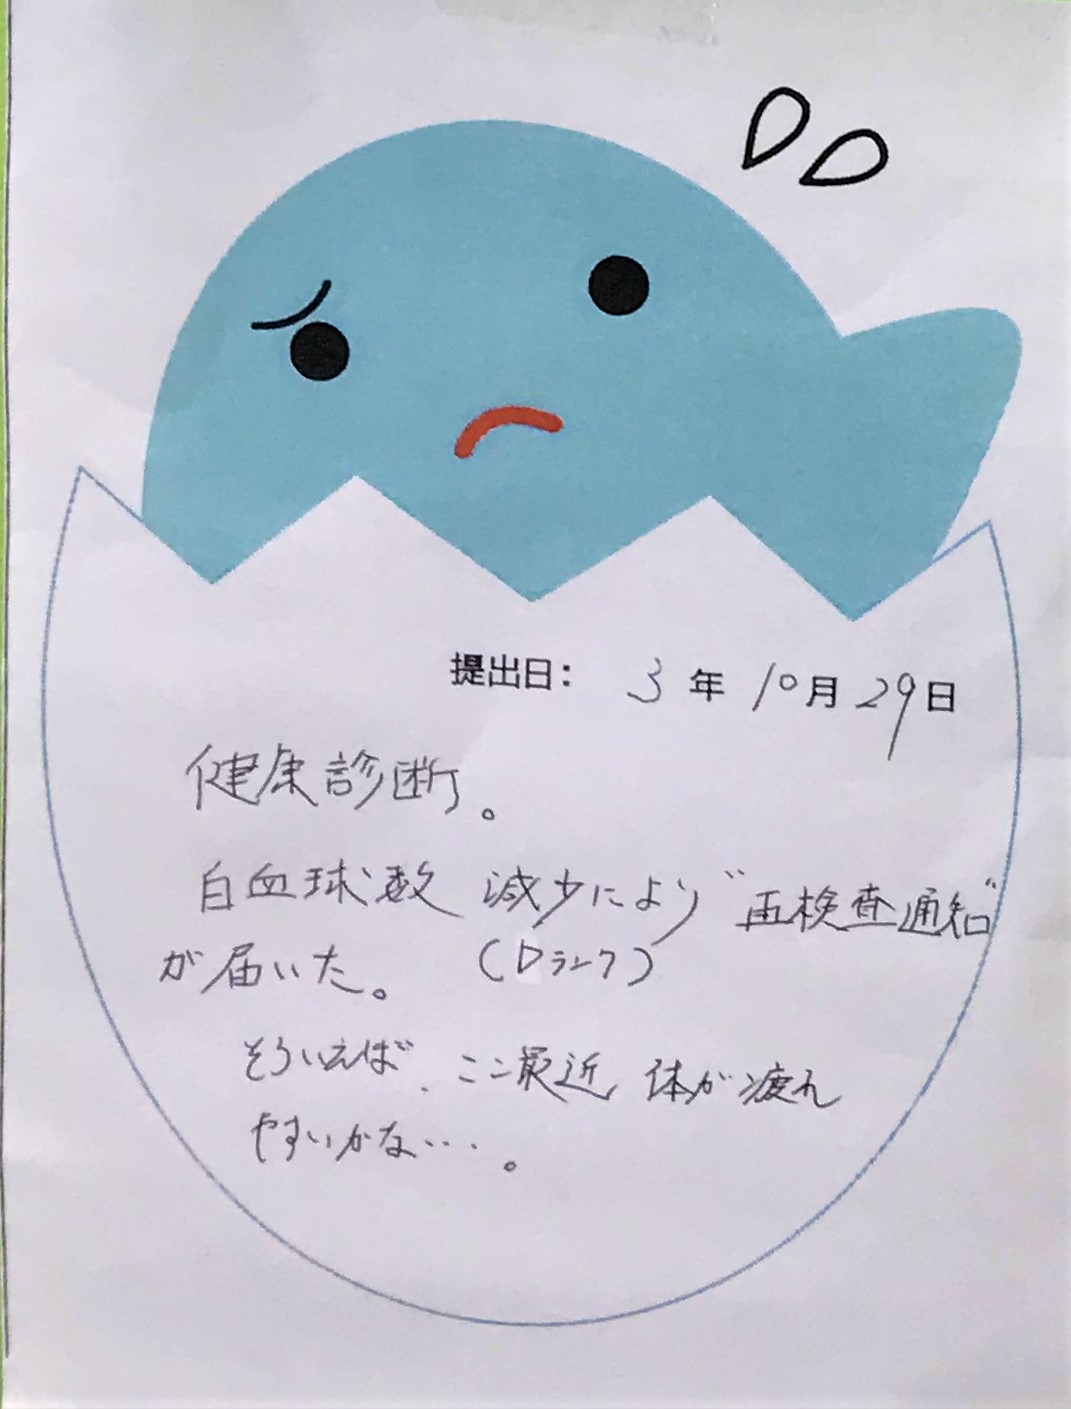 提出日: 3年10月29日
健康診断。
白血球数 減少により"再検査通知"
が届いた。 (Dランク)
そういえば、ここ最近 体が疲れ
やすいかな…。